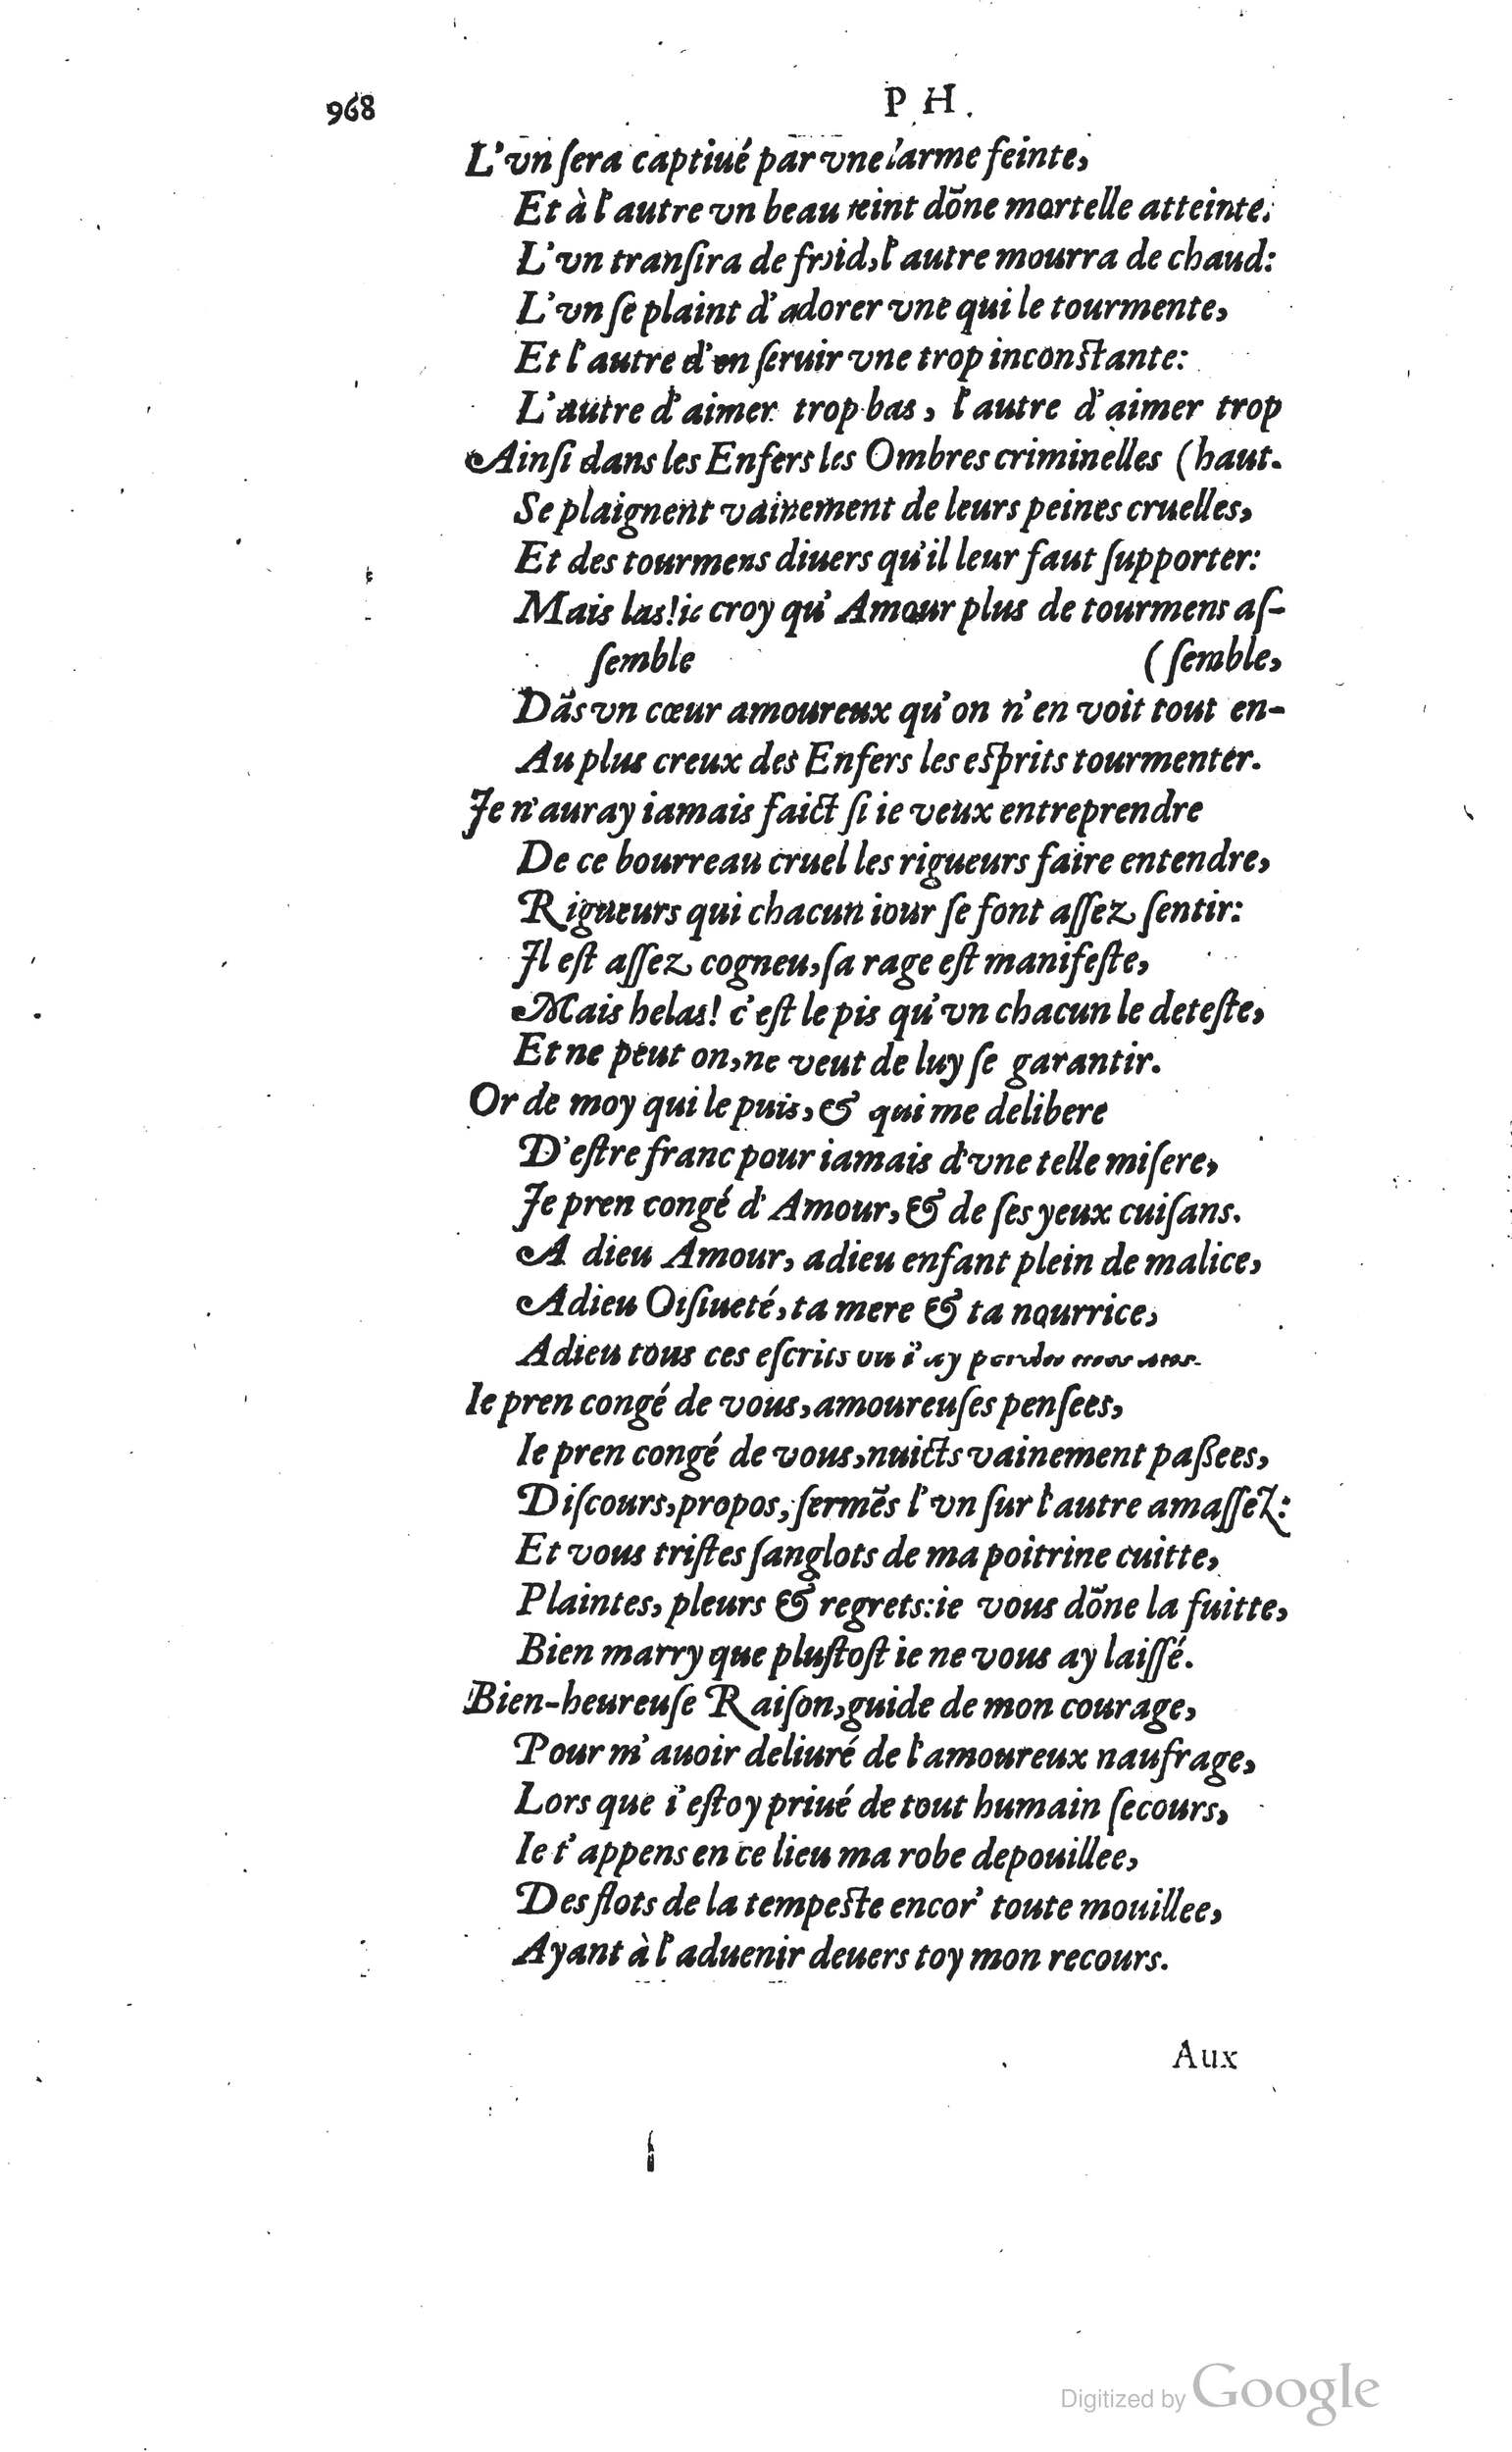 968 P H.
L'vn ſera captiué par vne larme feinte,
Et à l'autre vn beau teint dõne mortelle atteinte:
L'vn tranſira de froid, l'autre mourra de chaud:
L'vn ſe plaint d'adorer vne qui le tourmente,
Et l'autre d'en ſeruir vne trop inconstante:
L'autre d'aimer trop bas, l'autre d'aimer trop
Ainſi dans les Enfers les Ombres criminelles (haut.
Se plaignent vainement de leurs peines cruelles,
Et des tourmens diuers qu'il leur faut ſupporter:
Mais las! ie croy qu'Amour plus de tourmens aſ-
ſemble (ſemble,
Dãs vn cœur amoureux qu'on n'en voit tout en-
Au plus creux des Enfers les eſprits tourmenter.
Je n'auray iamais faict ſi ie veux entreprendre
De ce bourreau cruel les rigueurs faire entendre,
Rigueurs qui chacun iour ſe font aſſez ſentir:
Jl eſt aſſez cogneu, ſa rage eſt manifeſte,
Mais helas! c'eſt le pis qu'vn chacun le deteſte,
Et ne peut on, ne veut de luy ſe garantir.
Or de moy qui le puis, & qui me delibere
D'eſtre franc pour iamais d'vne telle miſere,
Je pren congé d'Amour, & de ſes yeux cuiſans.
A dieu Amour, adieu enfant plein de malice,
Adieu Oiſiueté, ta mere & ta nourrice,
Adieu tous ces eſcrits ou i'ay perdu mes ans.
Ie pren congé de vous, amoureuſes penſees,
Ie pren congé de vous, nuicts vainement paßees,
Diſcours, propos, ſermẽs l'vn ſur l'autre amaſſez:
Et vous triſtes ſanglots de ma poitrine cuitte,
Plaintes, pleurs & regrets: ie vous dõne la fuitte,
Bien marry que pluſtoſt ie ne vous ay laiſſé.
Bien-heureuſe Raiſon, guide de mon courage,
Pour m'auoir deliuré de l'amoureux naufrage,
Lors que i'eſtoy priué de tout humain ſecours,
Ie t'appens en ce lieu ma robe depouillee,
Des flots de la tempeste encor' toute mouillee,
Ayant à l'aduenir deuers toy mon recours.
Aux
Digitized by Google